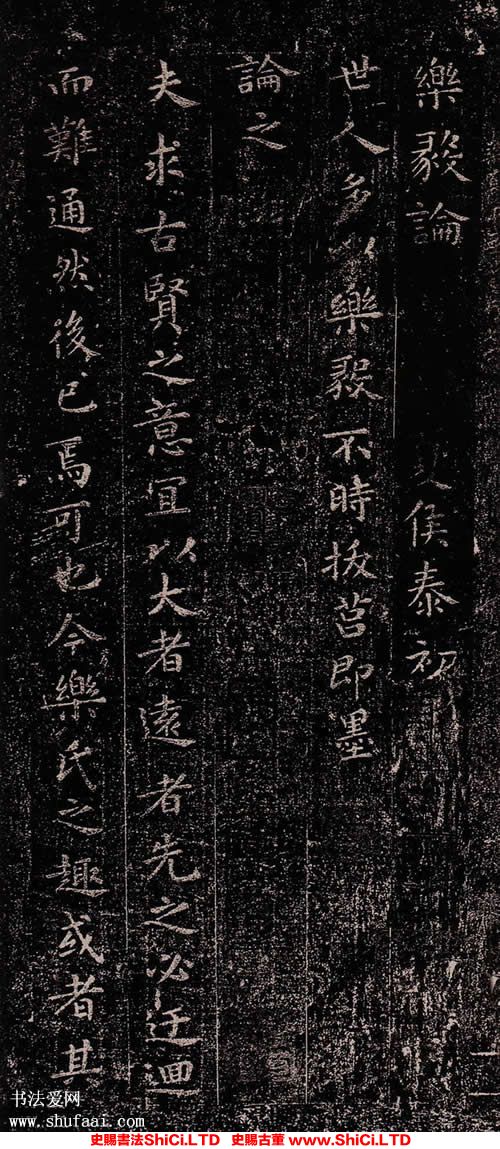 樂毅論 夏侯泰初
世人多以樂毅不時拔莒即墨
論之
夫求古賢之意宜以大者遠者先之必迂迴
而難通然後已焉可也今樂氏之趣或者其
书法爱网
www.shufaai.com
史賜書法ShiCi.LTD 史賜古董 www.ShiCi.LTD